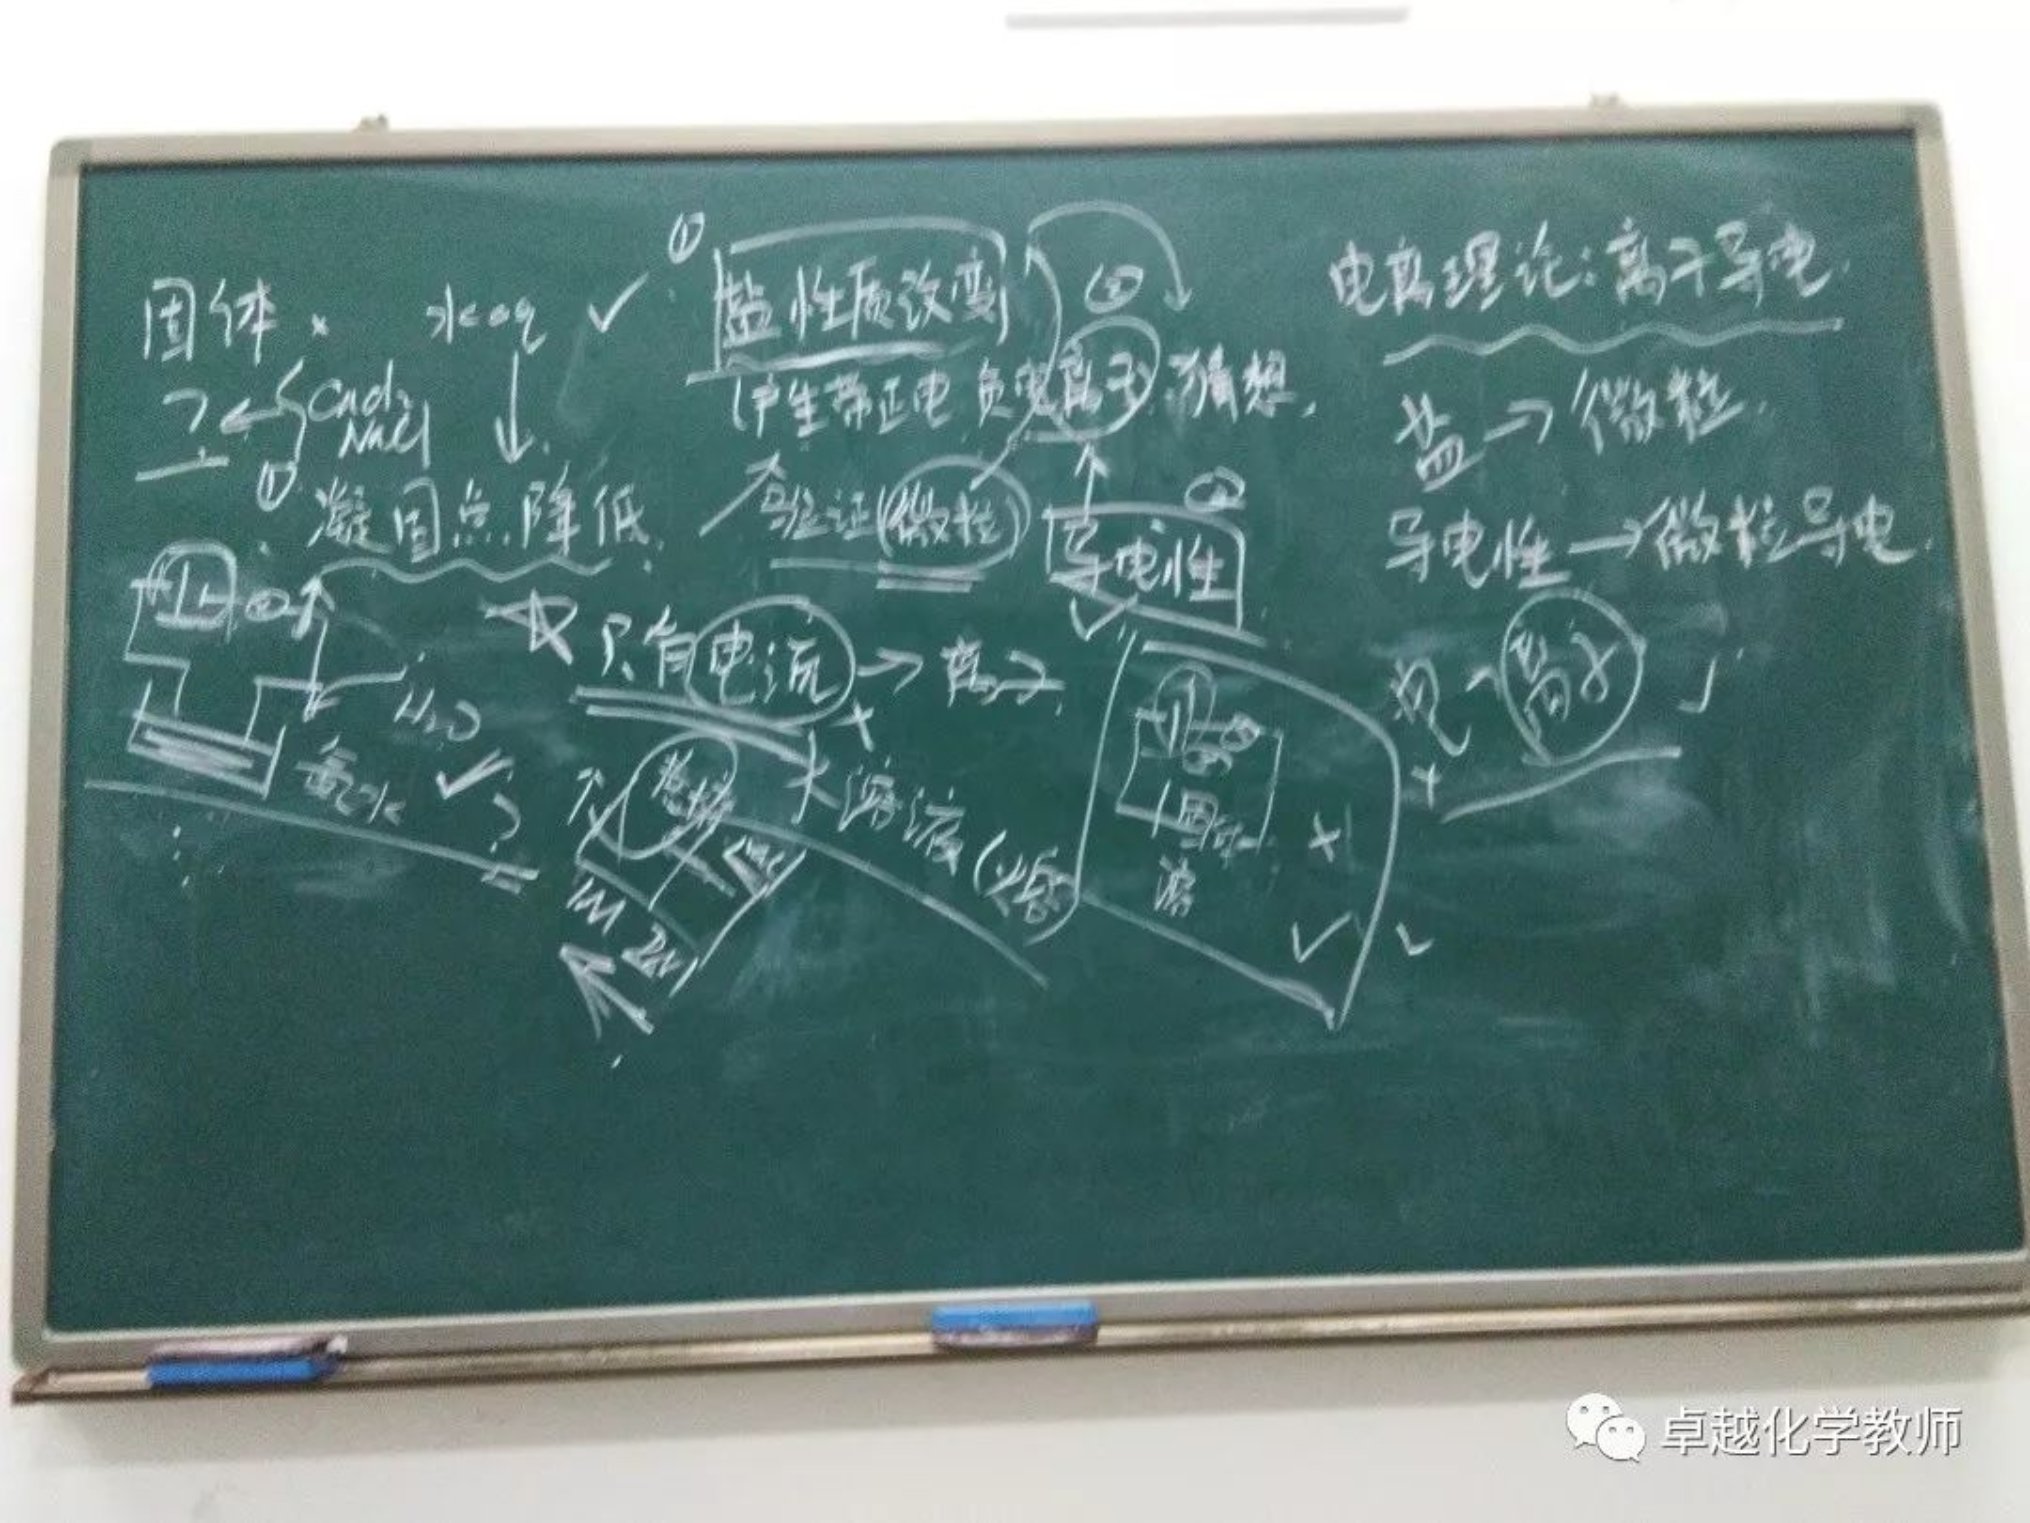 固体 × 水 aq ✓
CaCl₂
NaCl
①
凝固点降低.
H₂O
氨水 ✓
①
盐性质改变
②
(产生带正电 负电离子.猜想.
验证(微粒)
②
导电性
✓
只有电流 → 离子
溶液(熔
×
✓
电离理论:离子导电.
盐→微粒.
导电性→微粒导电.
离子
卓越化学教师